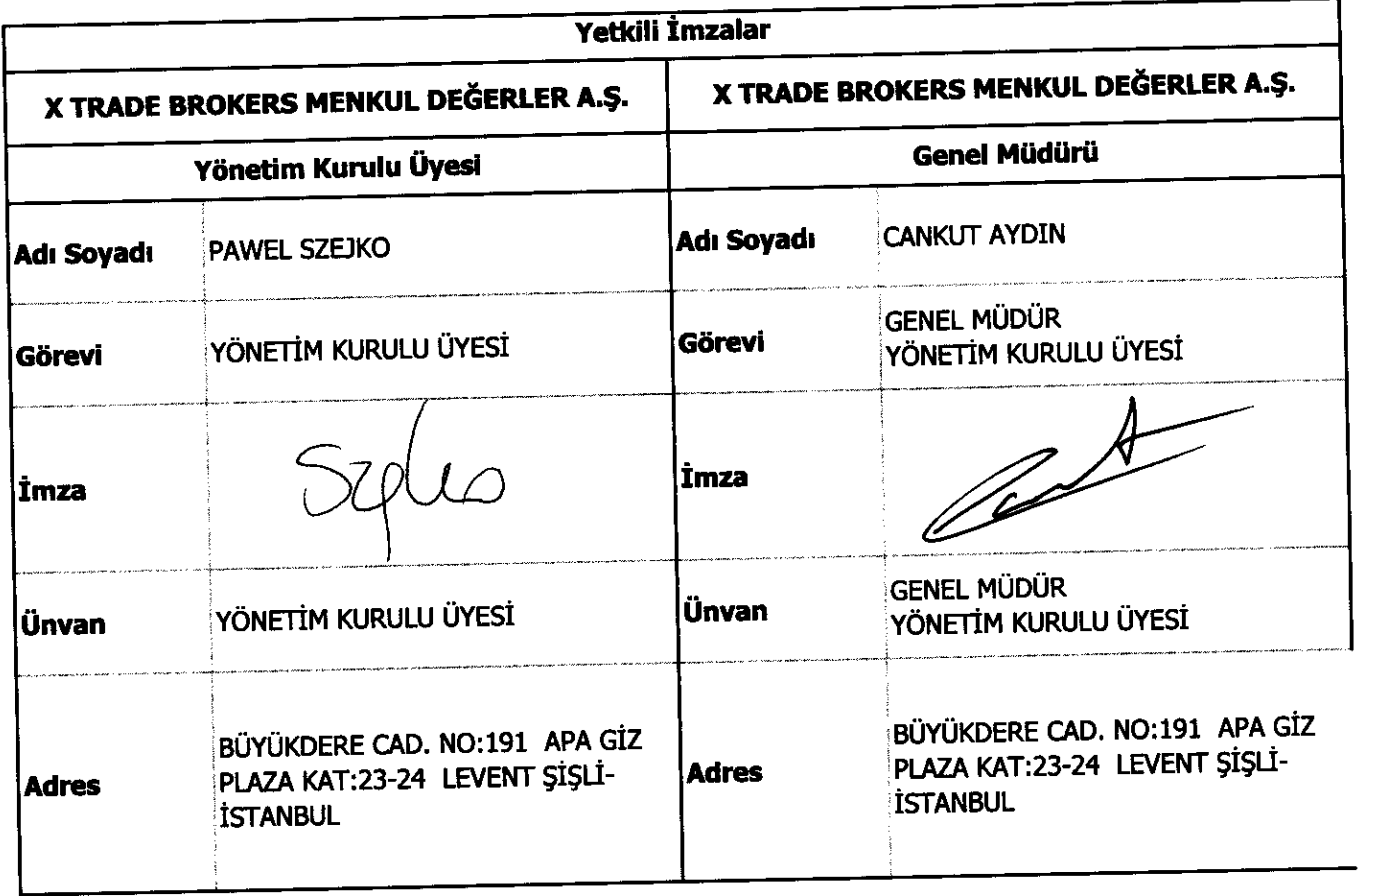 Yetkili İmzalar
X TRADE BROKERS MENKUL DEĞERLER A.Ş.
X TRADE BROKERS MENKUL DEĞERLER A.Ş.
Yönetim Kurulu Üyesi
Genel Müdürü
Adı Soyadı
PAWEL SZEJKO
Adı Soyadı
CANKUT AYDIN
Görevi
YÖNETİM KURULU ÜYESİ
Görevi
GENEL MÜDÜR
YÖNETİM KURULU ÜYESİ
İmza
İmza
Ünvan
YÖNETİM KURULU ÜYESİ
Ünvan
GENEL MÜDÜR
YÖNETİM KURULU ÜYESİ
Adres
BÜYÜKDERE CAD. NO:191 APA GİZ
PLAZA KAT:23-24 LEVENT ŞİŞLİ-
İSTANBUL
Adres
BÜYÜKDERE CAD. NO:191 APA GİZ
PLAZA KAT:23-24 LEVENT ŞİŞLİ-
İSTANBUL